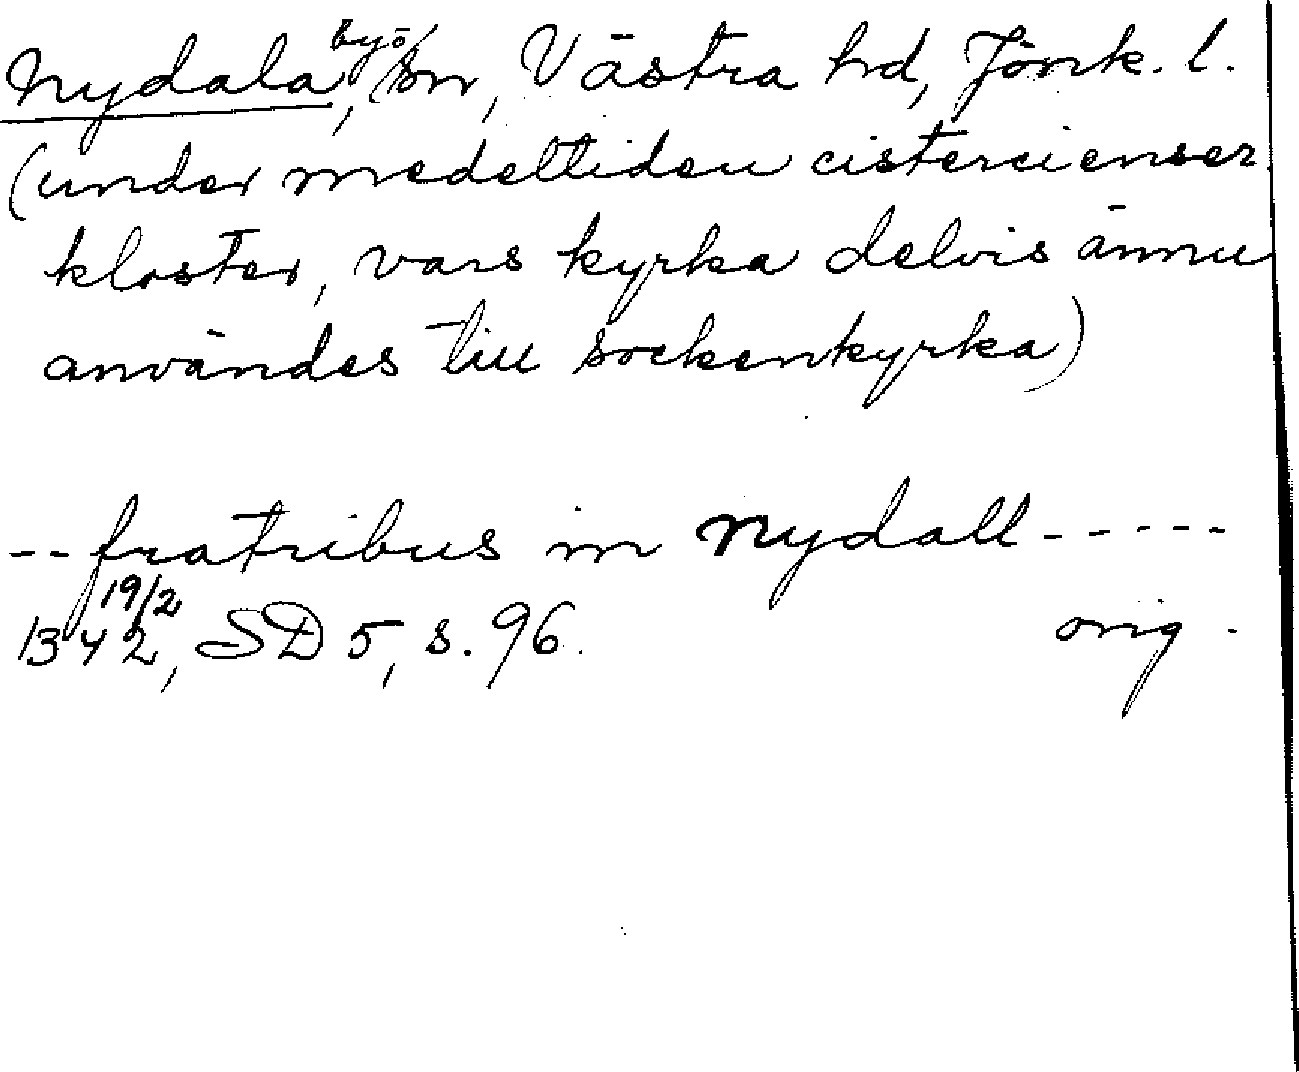 Nydala, by o/ sn, Västra hd, Jönk. l.
(under medeltiden cistercienser
kloster, vars kyrka delvis ännu
användes till sockenkyrka)
-- fratribus in Nydall -----
1342 19/2, SD 5, s. 96. orig.